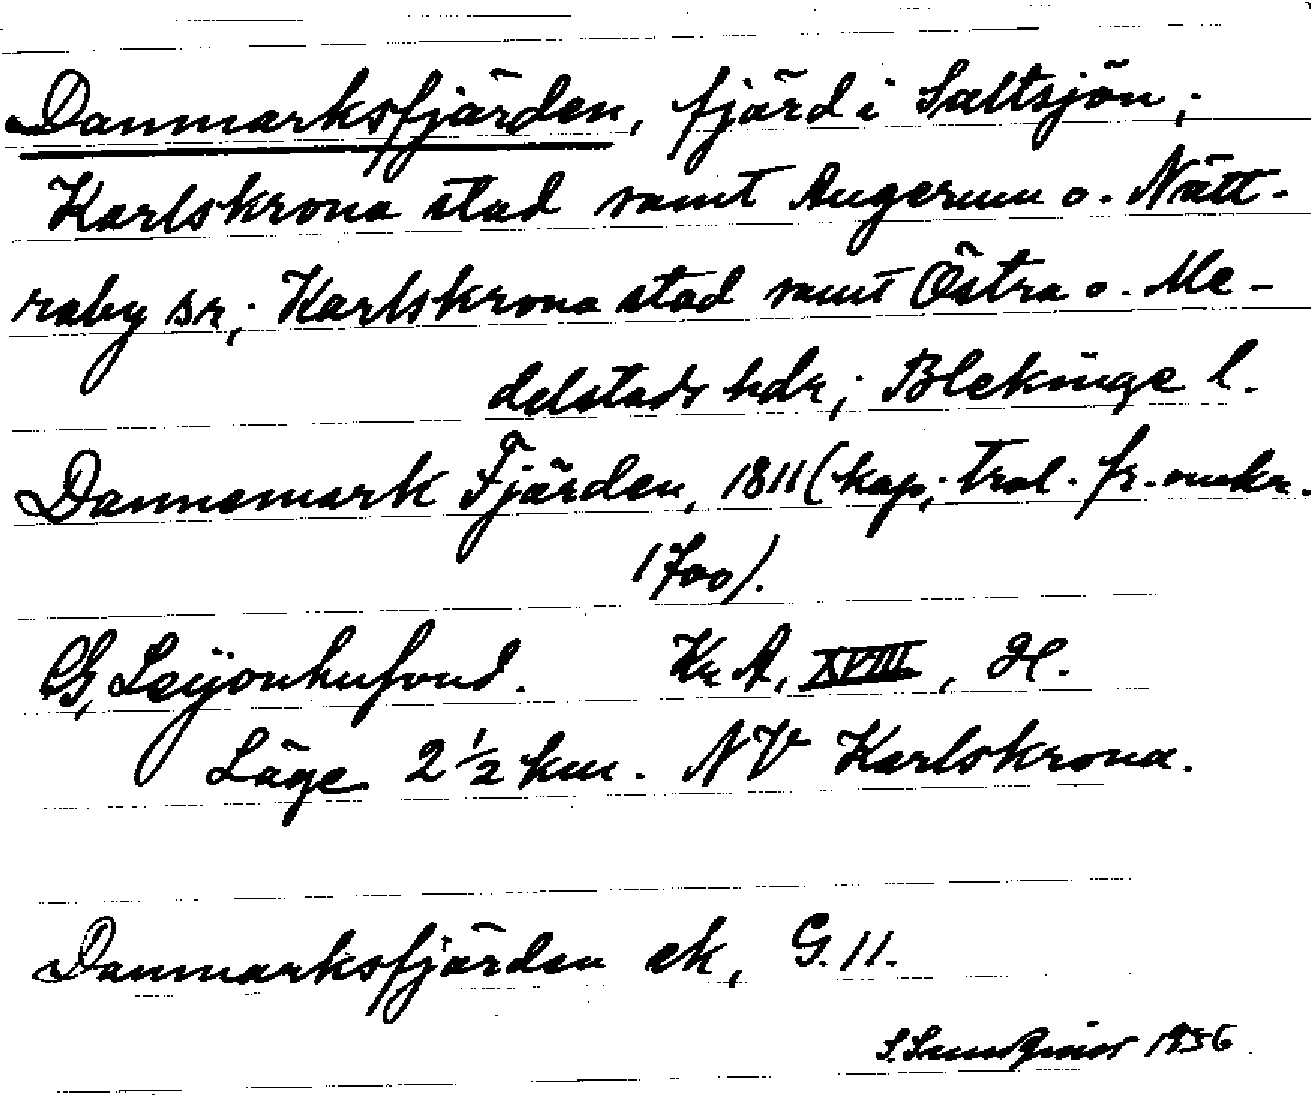 Danmarksfjärden, fjärd i Saltsjön;
Karlskrona stad samt Augerum o. Nätt-
raby sr; Karlskrona stad samt Östra o. Me-
delstads hdr; Blekinge l.
Dannemark Fjärden, 1811 (kop; trol. fr. omkr.
1700).
CG, Leijonhufvud. Kr A, XVIII, H.
Läge 2 1/2 km. NV Karlskrona.
Danmarksfjärden ek, G. 11.
S. Sundqvist 1936